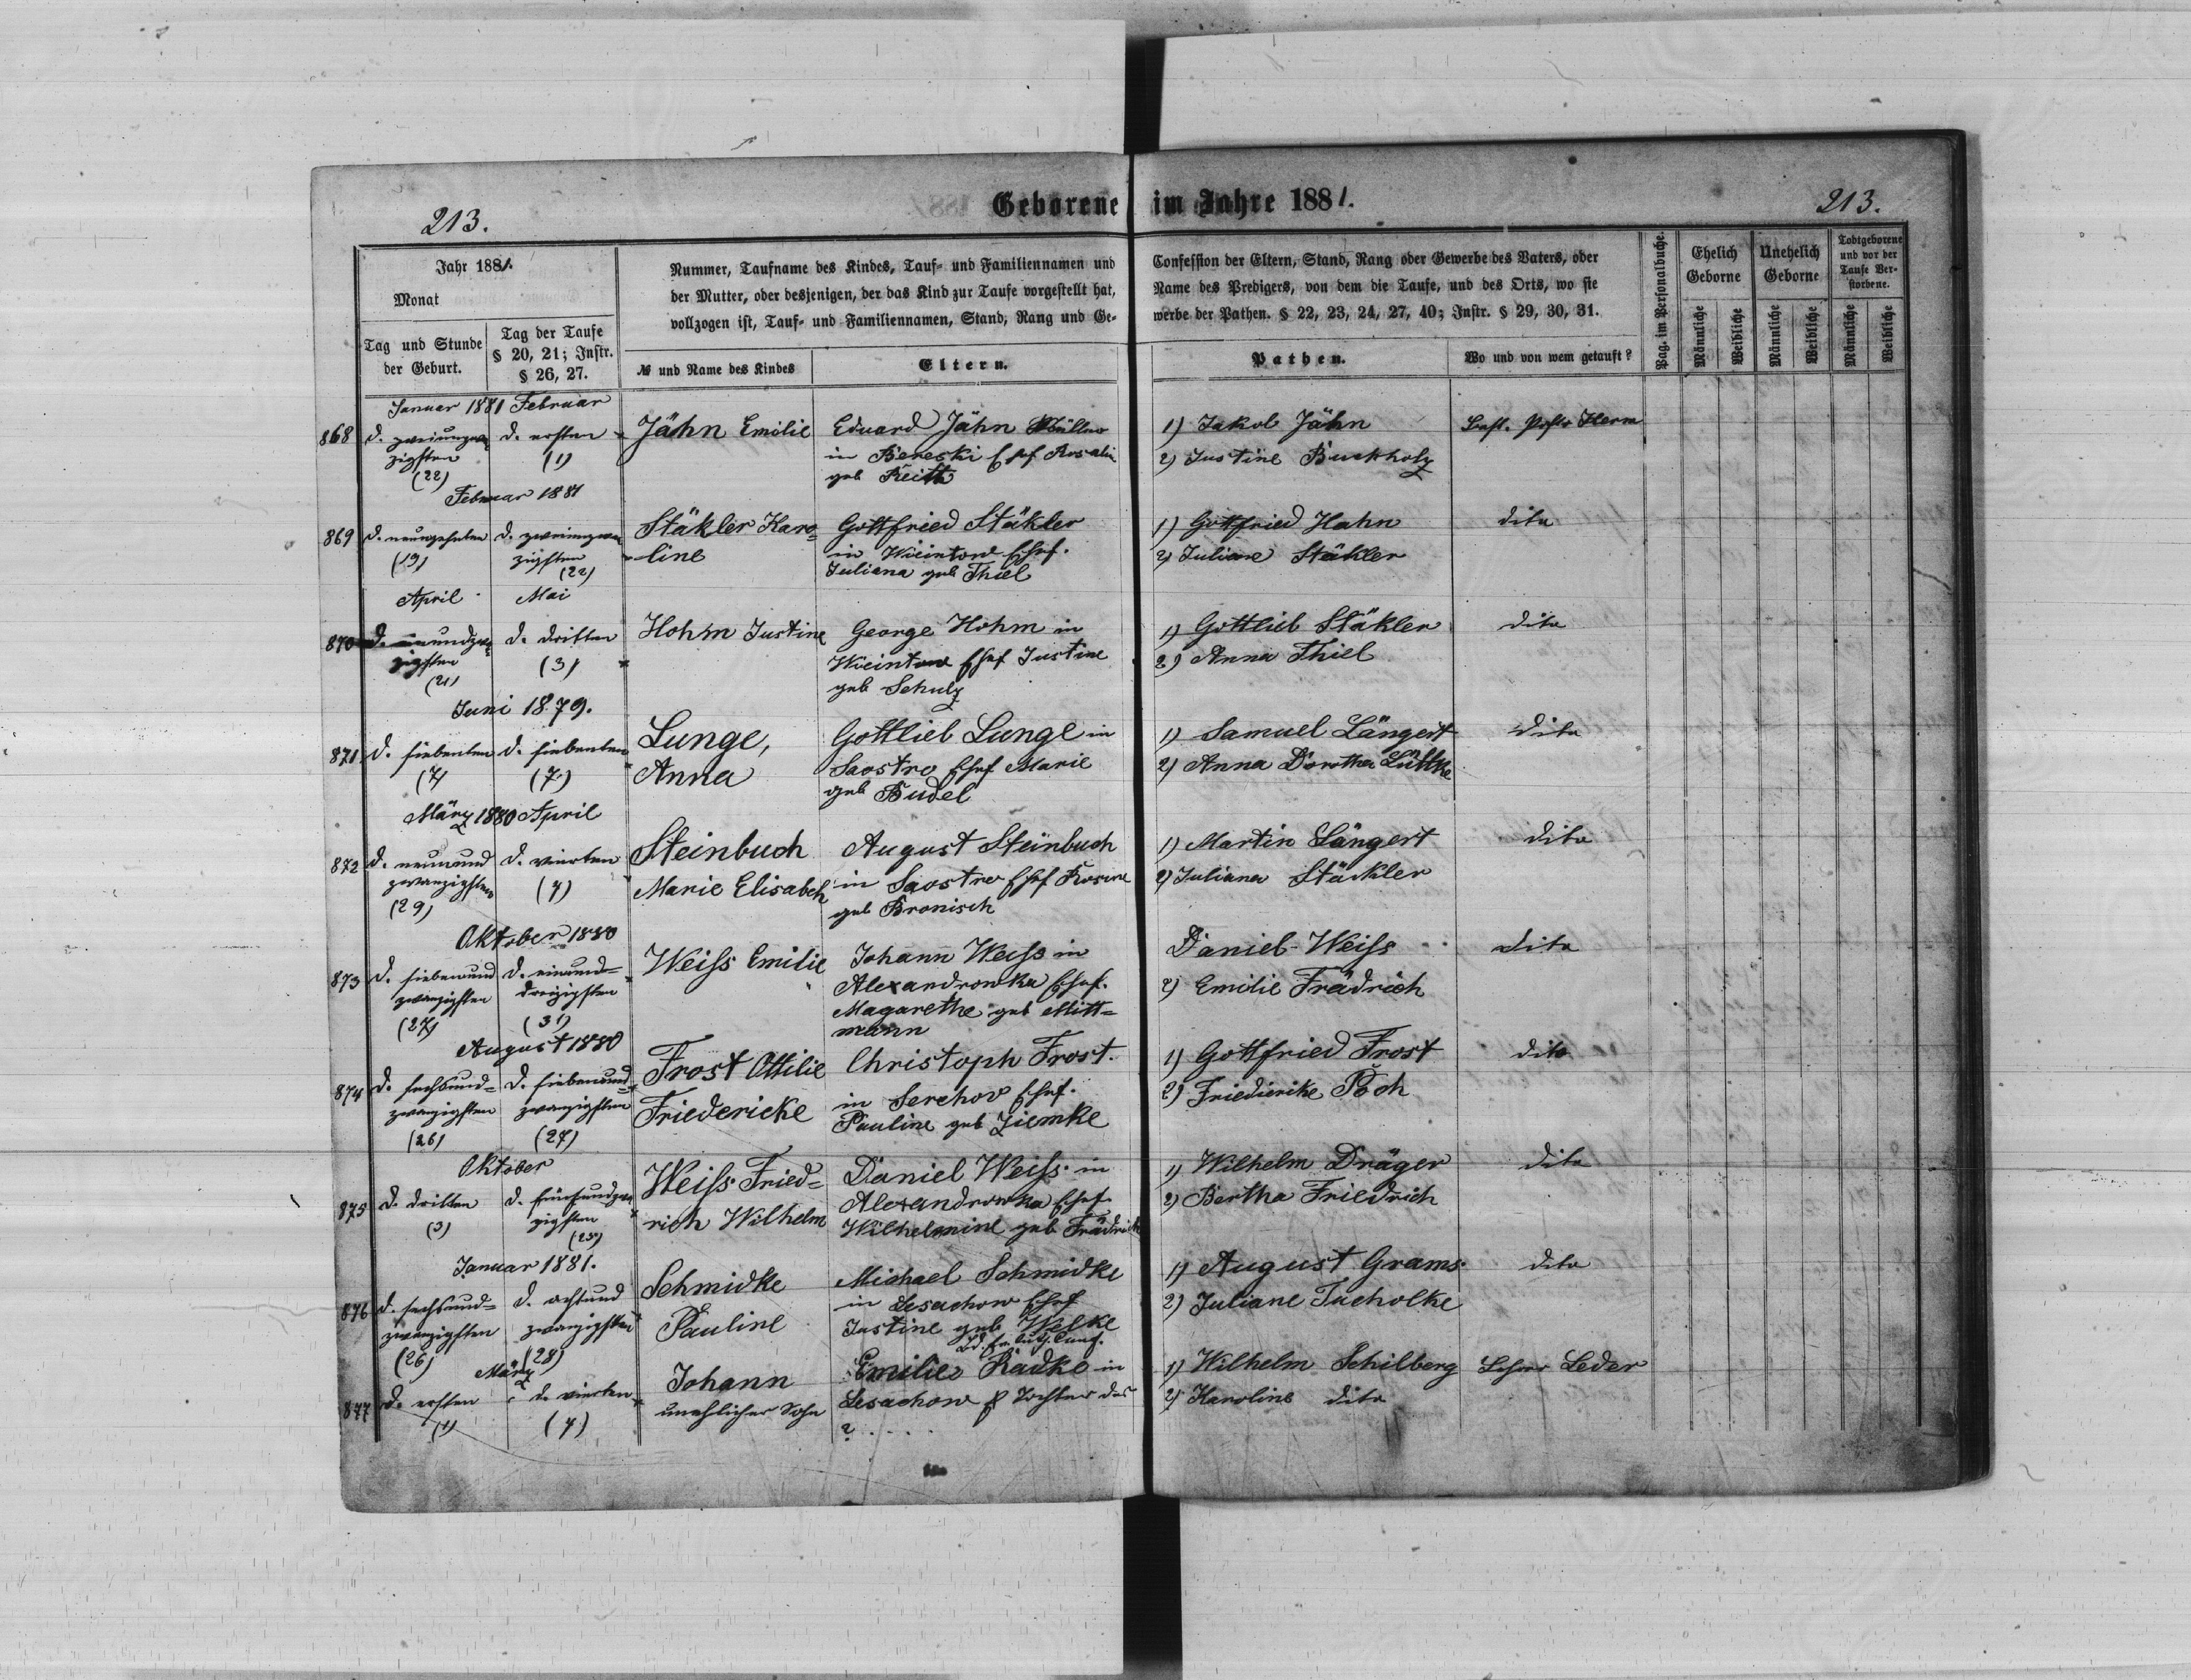 Geborene im Jahre 1881.
213.
213.
Jahr 1881.
Monat
Tag und Stunde der Geburt.
Tag der Taufe § 20, 21; Instr. § 26, 27.
Nummer, Taufname des Kindes, Tauf- und Familiennamen und
der Mutter, oder desjenigen, der das Kind zur Taufe vorgestellt hat,
vollzogen ist, Tauf- und Familiennamen, Stand, Rang und Ge-
№ und Name des Kindes
Eltern.
Confession der Eltern, Stand, Rang oder Gewerbe des Vaters, oder
Name des Predigers, von dem die Taufe, und des Orts, wo sie
werbe der Pathen. § 22, 23, 24, 27, 40; Instr. § 29, 30, 31.
Pathen.
Wo und von wem getauft?
Pag. im Personalbuche.
Ehelich Geborne
Unehelich Geborne
Todtgeborene und vor der Taufe Verstorbene.
Männliche
Weibliche
Männliche
Weibliche
Männliche
Weibliche
Januar 1881 Februar
868 d. zweiundzwan
zigsten
(22)
d. ersten
(1)
Jähn Emilie
Eduard Jähn Müller
in Bereski Ehef Rosalie
geb Reith
1) Jakob Jähn
2) Justine Buckholz
Past. Herm
Februar 1881
869 d. neunzehnten
(19)
d. zweiundzwan
zigsten
(22)
Stäkler Karo=
line
Gottfried Stäkler
in Wieintow Ehef.
Juliana geb Thiel
1) Gottfried Hahn
2) Juliane Stäkler
dito
April
Mai
870 d. einundzwan
zigsten
(21)
d. dritten
(3)
Hohm Justine
George Hohm in
Wieintow Ehef Justine
geb Schulz
1) Gottlieb Stäkler
2) Anna Thiel
dito
Juni 1879.
871 d. siebenten
(7)
d. siebenten
(7)
Lunge,
Anna
Gottlieb Lunge in
Saostro Ehef Marie
geb Budel
1) Samuel Längert
2) Anna Dorothea Lüttke
dito
März 1880 April
872 d. neunund
zwanzigsten
(29)
d. vierten
(4)
Steinbuch
Marie Elisabeh
August Steinbuch
in Saostro Ehef Rosine
geb Bronisch
1) Martin Längert
2) Juliana Stäckler
dito
Oktober 1880
873 d. siebenund
zwanzigsten
(27)
d. einund=
dreizigsten
(31)
Weiss Emilie
Johann Weiss in
Alexandrowka Ehef.
Magarethe geb Mitt=
mann
Daniel Weiss
2) Emilie Frädrich
dito
August 1880
874 d. sechsund=
zwanzigsten
(26)
d. siebenund
zwanzigsten
(27)
Frost Ottilie
Friedericke
Christoph Frost.
in Serchov Ehef.
Pauline geb Ziemke
1) Gottfried Frost
2) Friedierike Poch
dito
Oktober
875 d. dritten
(3)
d. fünfundzwan
zigsten
(25)
Weiss Fried=
rich Wilhelm
Daniel Weiss in
Alexandrowka Ehef.
Wilhelmine geb Frädrich
1) Wilhelm Dräger
2) Bertha Friedrich
dito
Januar 1881.
876 d. sechsund=
zwanzigsten
(26)
d. achtund
zwanzigsten
(28)
Schmidke
Pauline
Michael Schmidke
in Lesachow Ehef
Justine geb Welke
1) August Grams
2) Juliane Tucholke
dito
März
877 d. ersten
(1)
d. vierten
(4)
Johann
unehlicher Sohn
Emilie Radke in
Lesachow Tochter des
?....
1) Wilhelm Schilberg
2) Karoline dito
Lehrer Leder